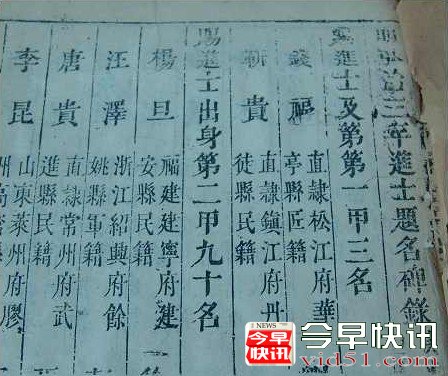 明弘治三年進士題名碑錄
賜進士及第第一甲三名
錢福
直隸松江府華
亭縣匠籍
靳貴
直隸鎮江府丹
徒縣民籍
賜進士出身第二甲九十名
楊旦
福建建寧府建
安縣民籍
汪澤
浙江紹興府餘
姚縣軍籍
唐貴
直隸常州府武
進縣民籍
李昆
山東萊州府膠
州高密縣
1 NEWS
今早
快讯
今早快讯
xid51.com